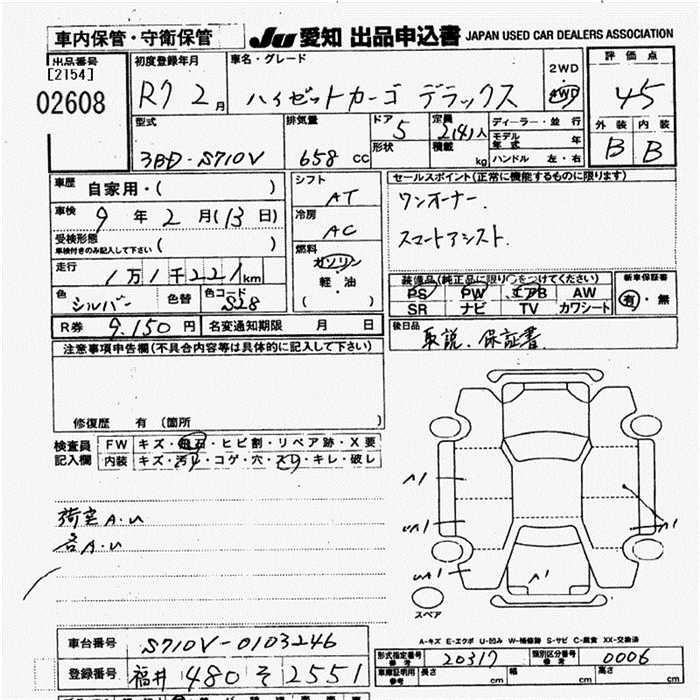 車内保管・守衛保管
JU 愛知 出品申込書 JAPAN USED CAR DEALERS ASSOCIATION
出品番号
[2154]
02608
初度登録年月
R7 2月
車名・グレード
ハイゼットカーゴ デラックス
2WD
4WD
評価点
4.5
外装 内装
B B
型式
3BD-S710V
排気量
658 CC
ドア
5
形状
定員
2(4)人
積載
kg
ディーラー・並行
モデル年式 年
ハンドル 左・右
車歴 自家用・( )
車検 9年2月(13日)
受検形態
車検付きのみ記入して下さい ( )
走行 1万1千221km
色 シルバー 色替 色コード S28
シフト
AT
冷房
AC
燃料
ガソリン
軽・油
( )
セールスポイント(正常に機能するものに限ります)
ワンオーナー.
スマートアシスト.
装備品(純正品に限り○をつけてください)
PS PW エアB AW
SR ナビ TV カワシート
新車保証書
有・無
R券 9,150円 名変通知期限 月 日
後日品
取説.保証書
注意事項申告欄(不具合内容等は具体的に記入して下さい)
修復歴 有 (箇所 )
検査員
記入欄
FW キズ・飛石・ヒビ割・リペア跡・X要
内装 キズ・汚れ・コゲ・穴・スリ・キレ・破レ
荷室A.U
各A.U
スペア
A-キズ E-エクボ U-凹み W-補修跡 S-サビ C-腐食 XX-交換済
車台番号 S710V-0103246
登録番号 福井 480 そ 2551
型式指定番号
参考
20317
類別区分番号
参考
0006
車庫証明用
参考
長さ 幅 高さ